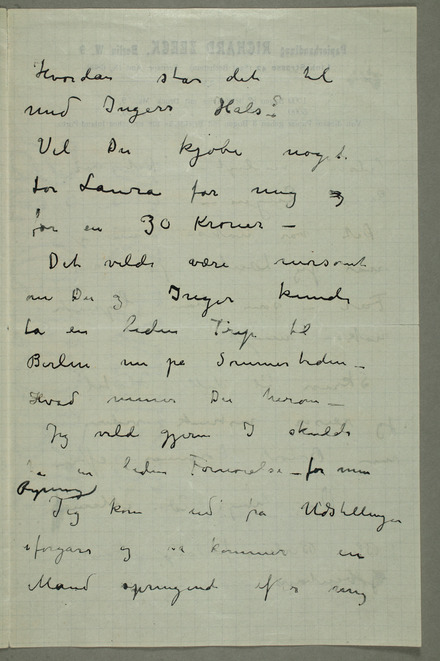 Hvordan står det til
med Ingers Hals?
Vil Du kjøbe noget
for Laura for mig
for en 30 Kroner –
Det vilde være morsomt
om Du og Inger kunde
ta en liden Trip til
Berlin nu på Sommertiden –
Hvad mener Du herom –
Jeg vild gjerne I skulde
ha en liden Fornøielse – for min
Regning
Jeg kom ud fra Udstillingen
iforgårs og så kommer en
Mand springende efter mig